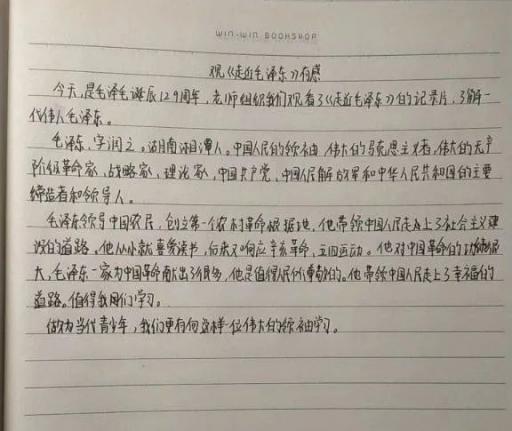 WIN-WIN BOOKSHOP
观《走近毛泽东》有感
今天,是毛泽毛诞辰129周年,老师组织我们观看了《走近毛泽东》的记录片,了解一
代伟人毛泽东。
毛泽东,字润之。湖南湘潭人。中国人民的领袖,伟大的马克思主义者,伟大的无产
阶级革命家,战略家,理论家,中国共产党、中国人民解放军和中华人民共和国的主要
缔造者和领导人。
毛泽东领导中国农民,创立第一个农村革命根据地。他带领中国人民走上了社会主义建
设的道路。他从小就喜爱读书,后来又响应辛亥革命,五四运动。他对中国革命的功绩很
大,毛泽东一家为中国革命献出了很多,他是值得人民尊敬的。他带领中国人民走上了幸福的
道路。值得我们学习。
做为当代青少年,我们更有向这样一位伟大的领袖学习。